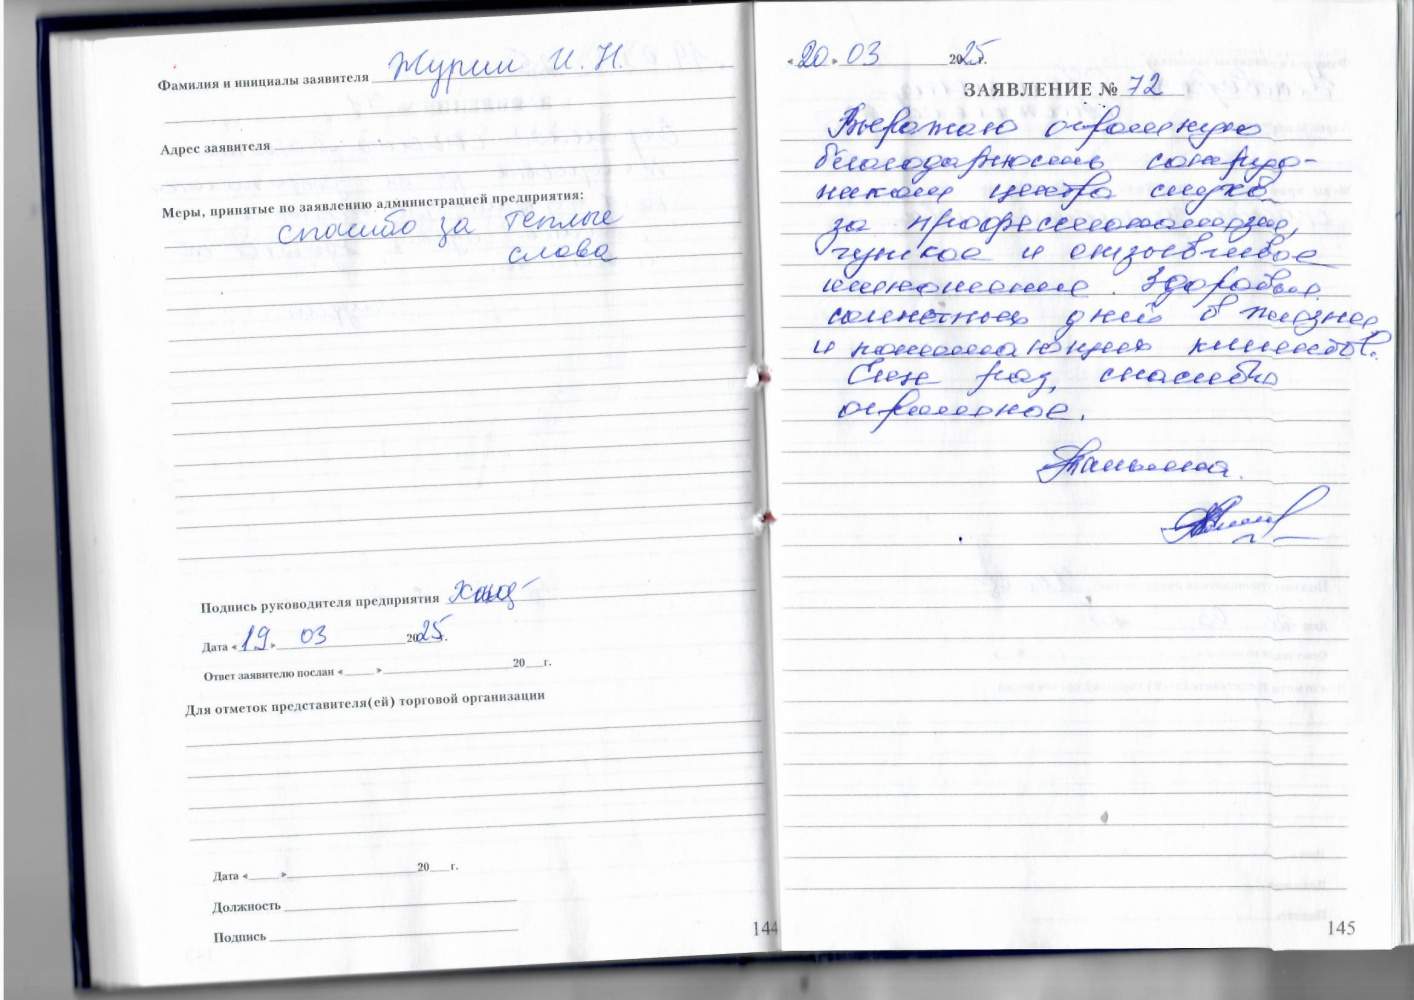 Фамилия и инициалы заявителя Журин И. Н.
Адрес заявителя
Меры, принятые по заявлению администрацией предприятия:
спасибо за теплые
слова
Подпись руководителя предприятия
Дата «19» 03 2025г.
Ответ заявителю послан «____» ____ 20___г.
Для отметок представителя(ей) торговой организации
Дата «____» ____ 20___г.
Должность
Подпись
144
«20» 03 2025г.
ЗАЯВЛЕНИЕ № 72
Выражаю огромную
благодарность сотруд-
никам центра
за профессионализм,
чуткое и отзывчивое
отношение. Здоровья,
солнечных дней в жизни
и понимающих клиентов.
Еще раз, спасибо
огромное.
145